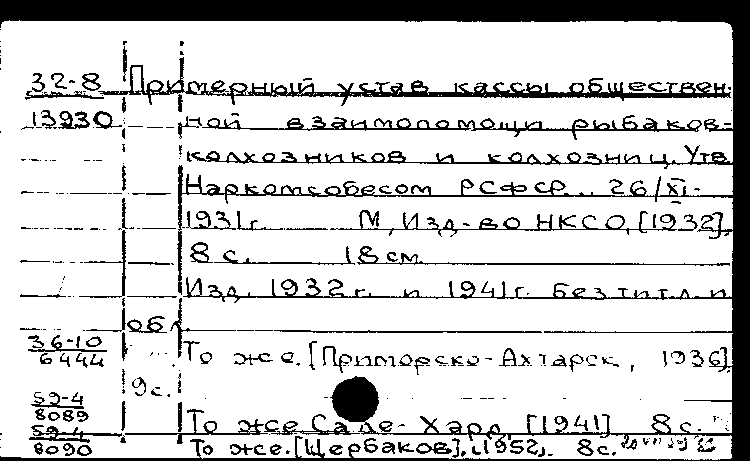 32-8 Примерный устав кассы обществен-
13930 ной взаимопомощи рыбаков-
колхозников и колхозниц. Утв
Наркомсобесом РСФСР. 26/XI-
1931г. М, Изд-во НКСО, [1932].
8 с. 18 см.
Изд. 1932 г. и 1941г. без тит. л и
обл.
36-10
6444 То же. [Приморско-Ахтарск, 1936]
9с.
59-4
8089 То же Сале-Хард, [1941] 8 с.
59-4
8090 То же. [Щербаков], 1952. 8с.